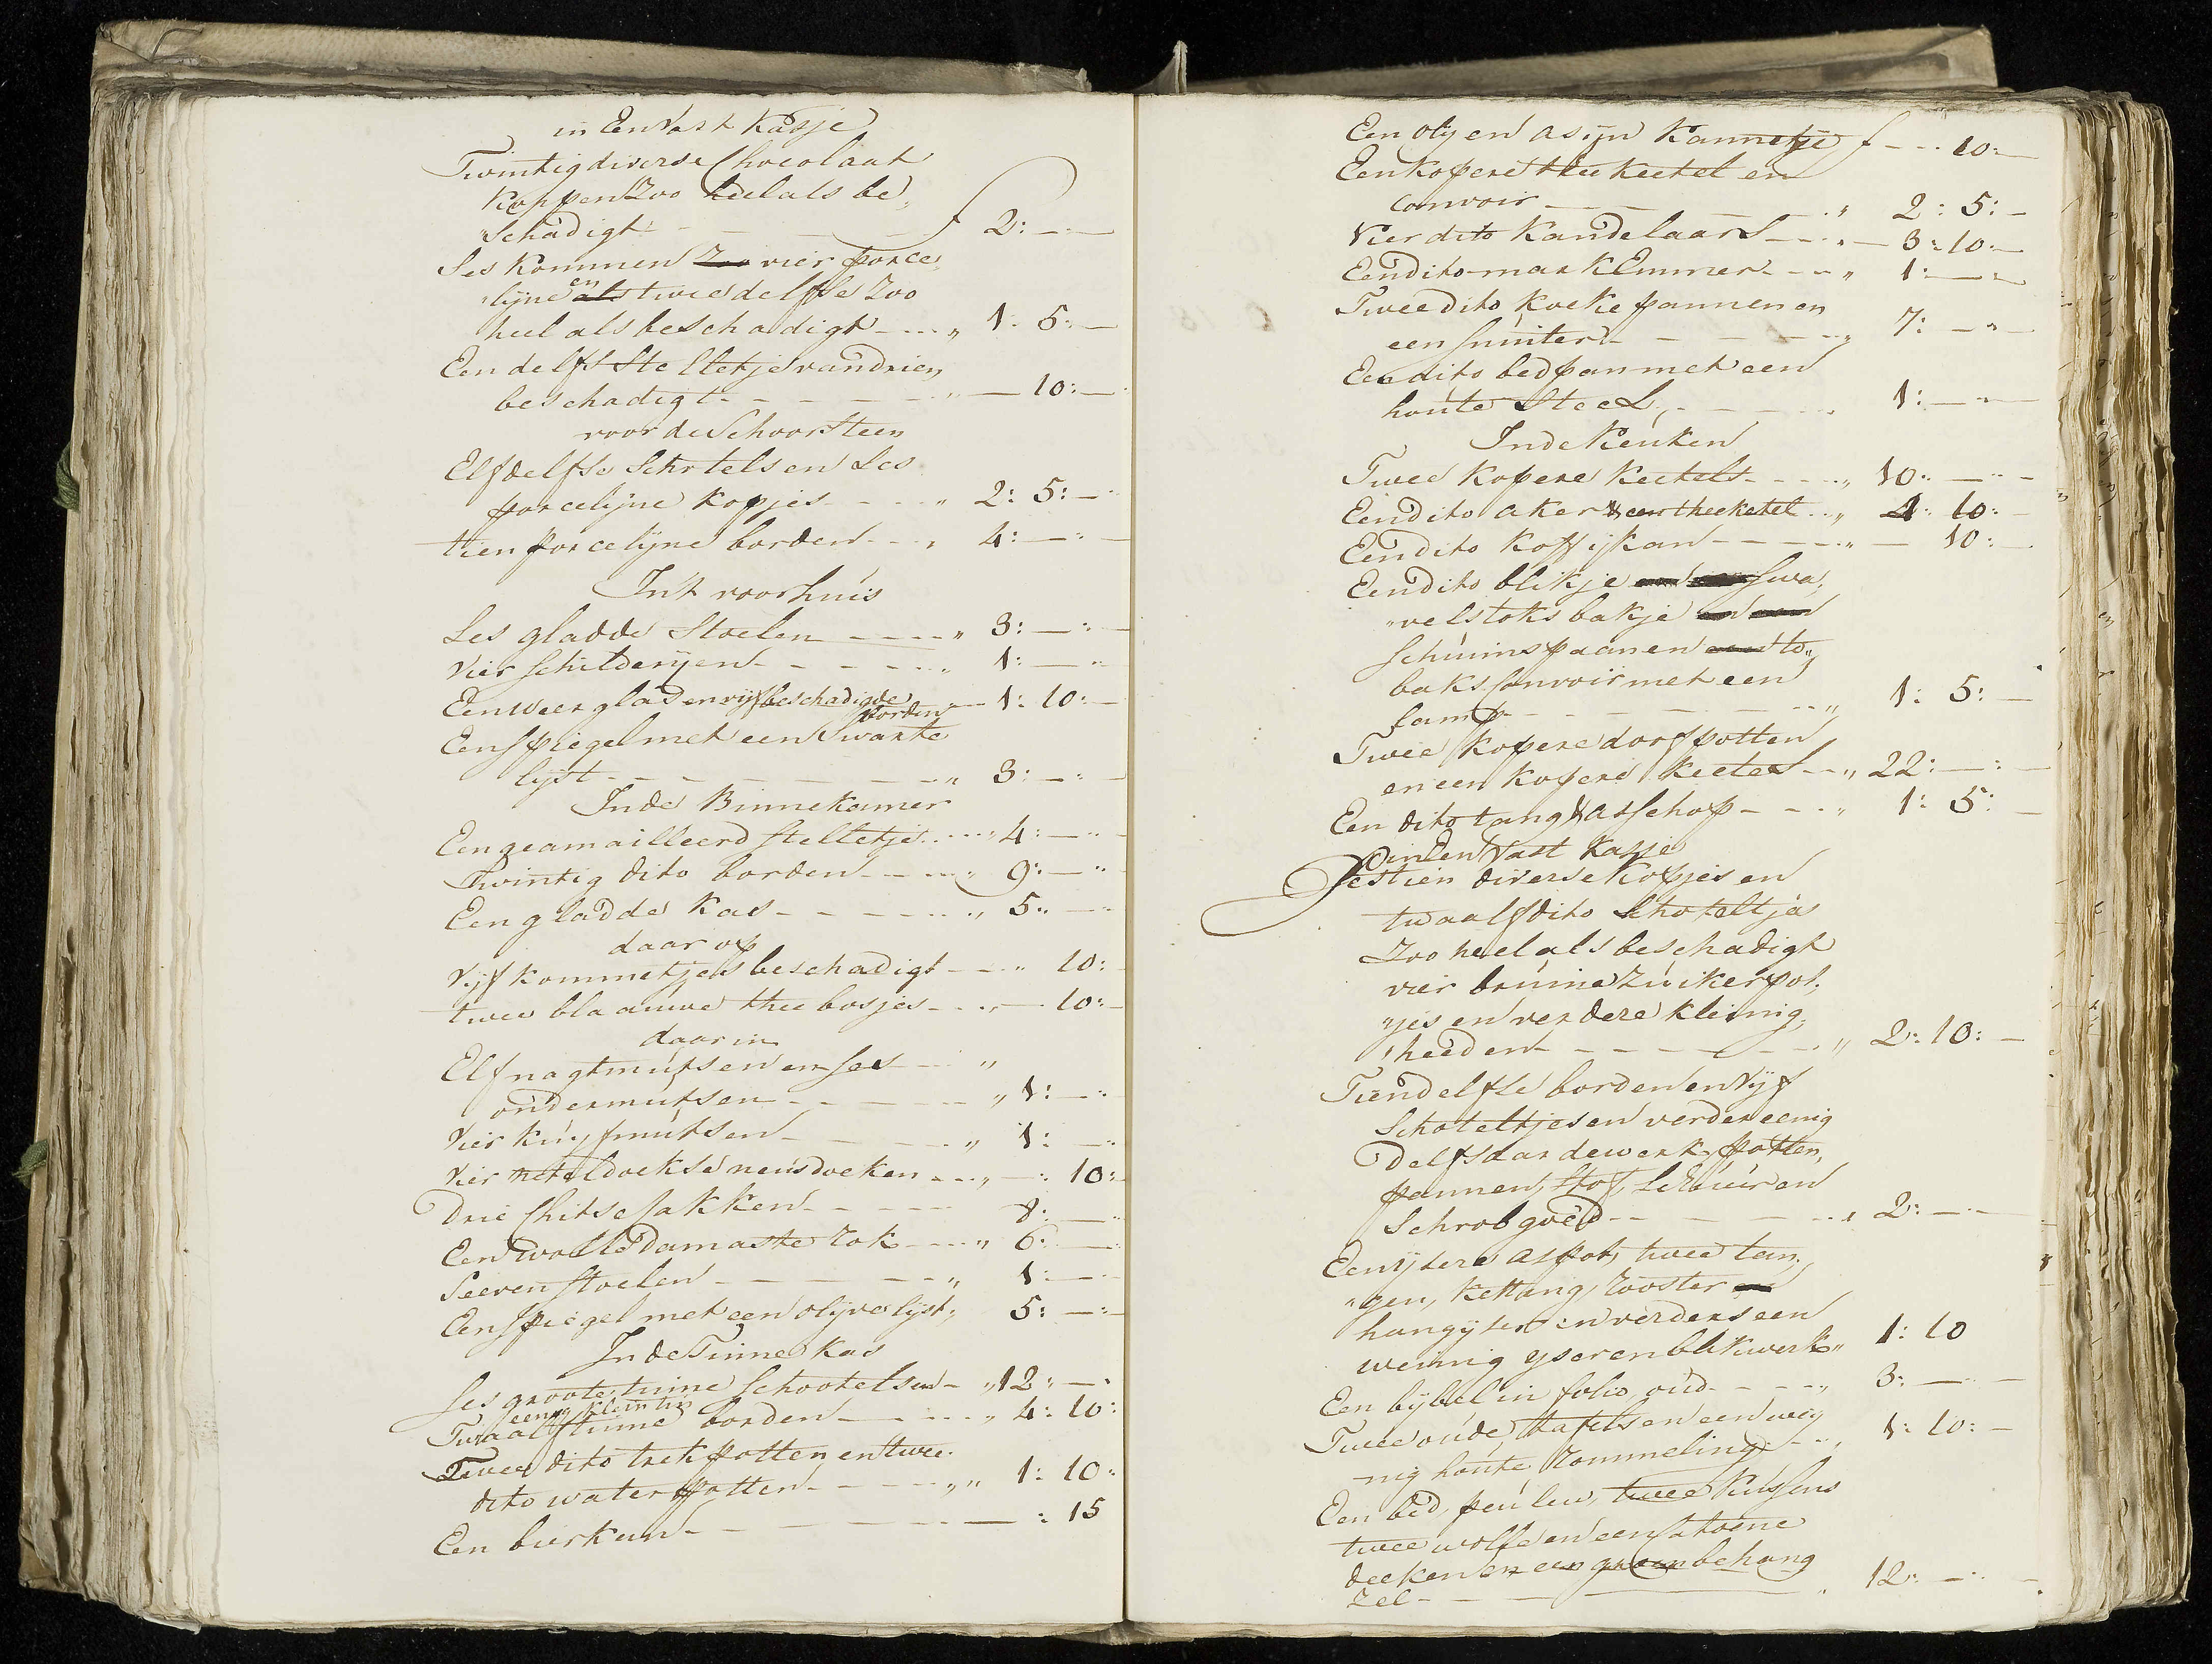 in Een Vast Kasje
Twintig diverse Chocolaat
Koppen Zoo heel als be„
„schadigt - - - - ƒ 2: — —
Ses Kommen Zoo vier porce„
„lijne en als twee delfse Zoo
heel als beschadigt - - - „ 1: 5: —
Een delfs Stelletje van drien
beschadigt - - - - „ — 10: —
voor de Schoorsteen
Elf delfse Schotels en Ses
porcelijne kopjes - - - „ 2: 5: —
tien porcelijne borden - - - „ 4: — —
In't voorhuis
Ses gladde Stoelen - - - „ 3: — —
Vier Schilderijen - - - - „ 1: — —
Een weerglas en vijf beschadigde
borden „ 1: 10: —
Een Spiegel met een Swarte
lijst - - - - - „ 3: — —
In de Binnekamer
Een geamailleerd Stelletje - - - „ 4: — —
Twintig dito borden - - - „ 9: — —
Een gladde Kas - - - - „ 5: — —
daar op
Vijf kommetjes beschadigt - - „ 10: —
twee blaauwe thee bosjes - - „ — 10: —
daar in
Elf nagtmutsen en ses - - „
ondermutsen - - - - „ 1: — —
Vier kuyfmutsen - - - „ 1: — —
Vier neteldoekse neusdoeken - - „ — : 10:
Drie Chitse Jakken - - - - 8: — —
Een wolle Damaste Rok - - - „ 6: — —
Seeven Stoelen - - - - „ 1: — —
Een Spiegel met een olijve lijst „ 5: — —
In de Tinne Kas
Ses groote tinne Schootels en - „ 12: — —
eenig klein tin
Twaalf tinne borden - - - „ 4: 10:
Twee dito trekpotten en twee
dito waterpotten - - - „ 1: 10:
Een bierkan - - - - — : 15
Een olij en asijn Kannetje ƒ - - - 10: —
Een kopere thee keetel en
Convoir - - - - „ 2: 5: —
Vier dito Kandelaars - - - „ 3: 10: —
Een dito mark Emmer - - - „ 1: — —
Twee dito koekepannen en
een Smiter - - - - „ 7: — —
Een dito bedpan met een
houte Steel - - - - 1: — —
In de Keuken
Twee Kopere keetels - - - „ 10: — —
Een dito aker & een theeketel - - „ 4: 10: —
Een dito koffijkan - - - - „ — 10: —
Een dito blikje Swa„
„velstoks bakje
Schuimspaan en to„
baks Convoir met een
Lamp - - - - - „ 1: 5: —
Twee kopere doofpotten
en een kopere keetel - - „ 22: — —
Een dito tang & asschop - - - „ 1: 5: —
in Een Vast Kasje
Sestien diverse kopjes en
twaalf dito schoteltjes
Zoo heel als beschadigt
vier bruine Zuikerpot„
„jes en verdere kleinig„
„heeden - - - - - „ 2: 10: —
Tien delfse borden en Vijf
Schoteltjes en verder eenig
Delfs aardewerk, potten,
pannen, Stof, Schuur en
Schrobgoed - - - - „ 2: — —
Een ijsere aspot, twee tan„
„gen, kettang, rooster
hangijser en verders een
weinig yser en blikwerk „ 1: 10
Een bijbel in folio oud - - - „ 3: — —
Twee oude tafels en een wei„
nig houte rommeling - - „ 1: 10: —
Een bed, peuluw, twee kussens
twee wolle en een Catoene
deeken en een groen behang
Zel - - - - - „ 12: — —